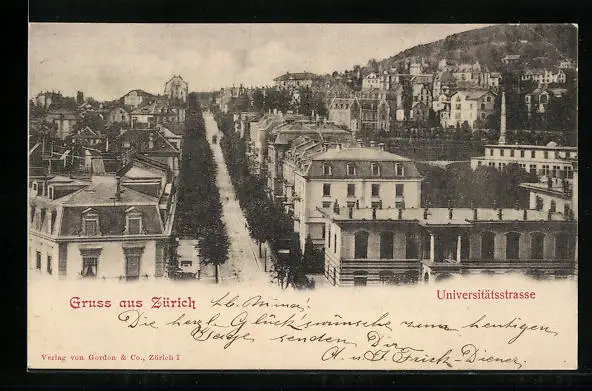 Gruss aus Zürich
Universitätsstrasse
Lb. Minna!
Die herzl. Glückwünsche zum heutigen
Tage senden Dir
A. u. J. Frick-Diener.
Verlag von Gordon & Co., Zürich I